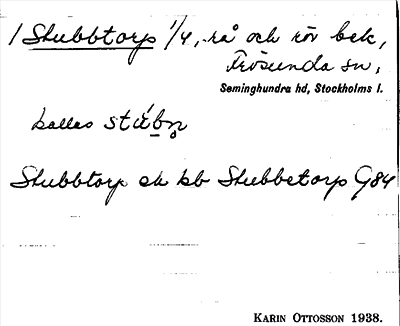 1 Stubbtorp 1/4, rå och rör bek,
Frösunda sn,
Seminghundra hd, Stockholms l.
kallas
Stubbtorp ek kb Stubbetorp G84
KARIN OTTOSSON 1938.